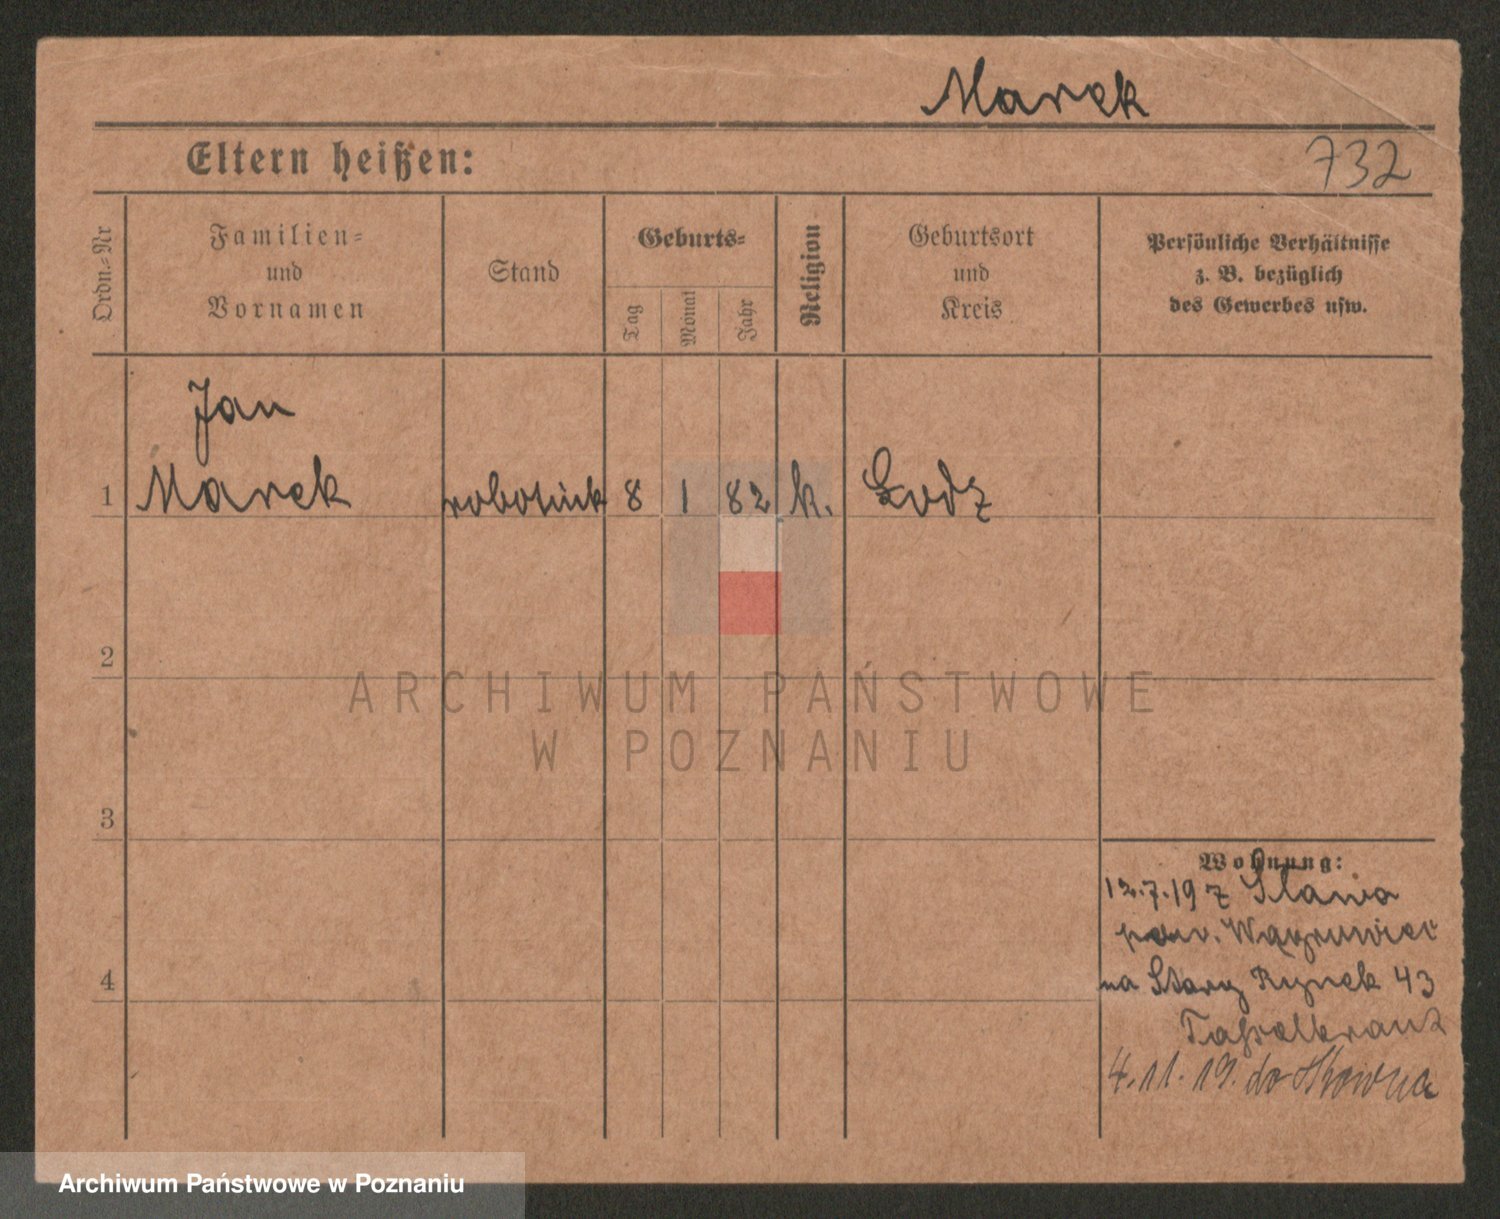 Marek
Eltern heißen:
732
Ordn.-Nr
Familien-
und
Vornamen
Stand
Geburts-
Tag
Monat
Jahr
Religion
Geburtsort
und
Kreis
Persönliche Verhältnisse
z. B. bezüglich
des Gewerbes usw.
Jan
1 Marek robotnik 8 1 82 k. Łodz
2
ARCHIWUM PAŃSTWOWE
W POZNANIU
3
Wohnung:
12.7.19 z Sława
pow. Wągrowiec
na Stary Rynek 43
4
4.11.19. do
Archiwum Państwowe w Poznaniu